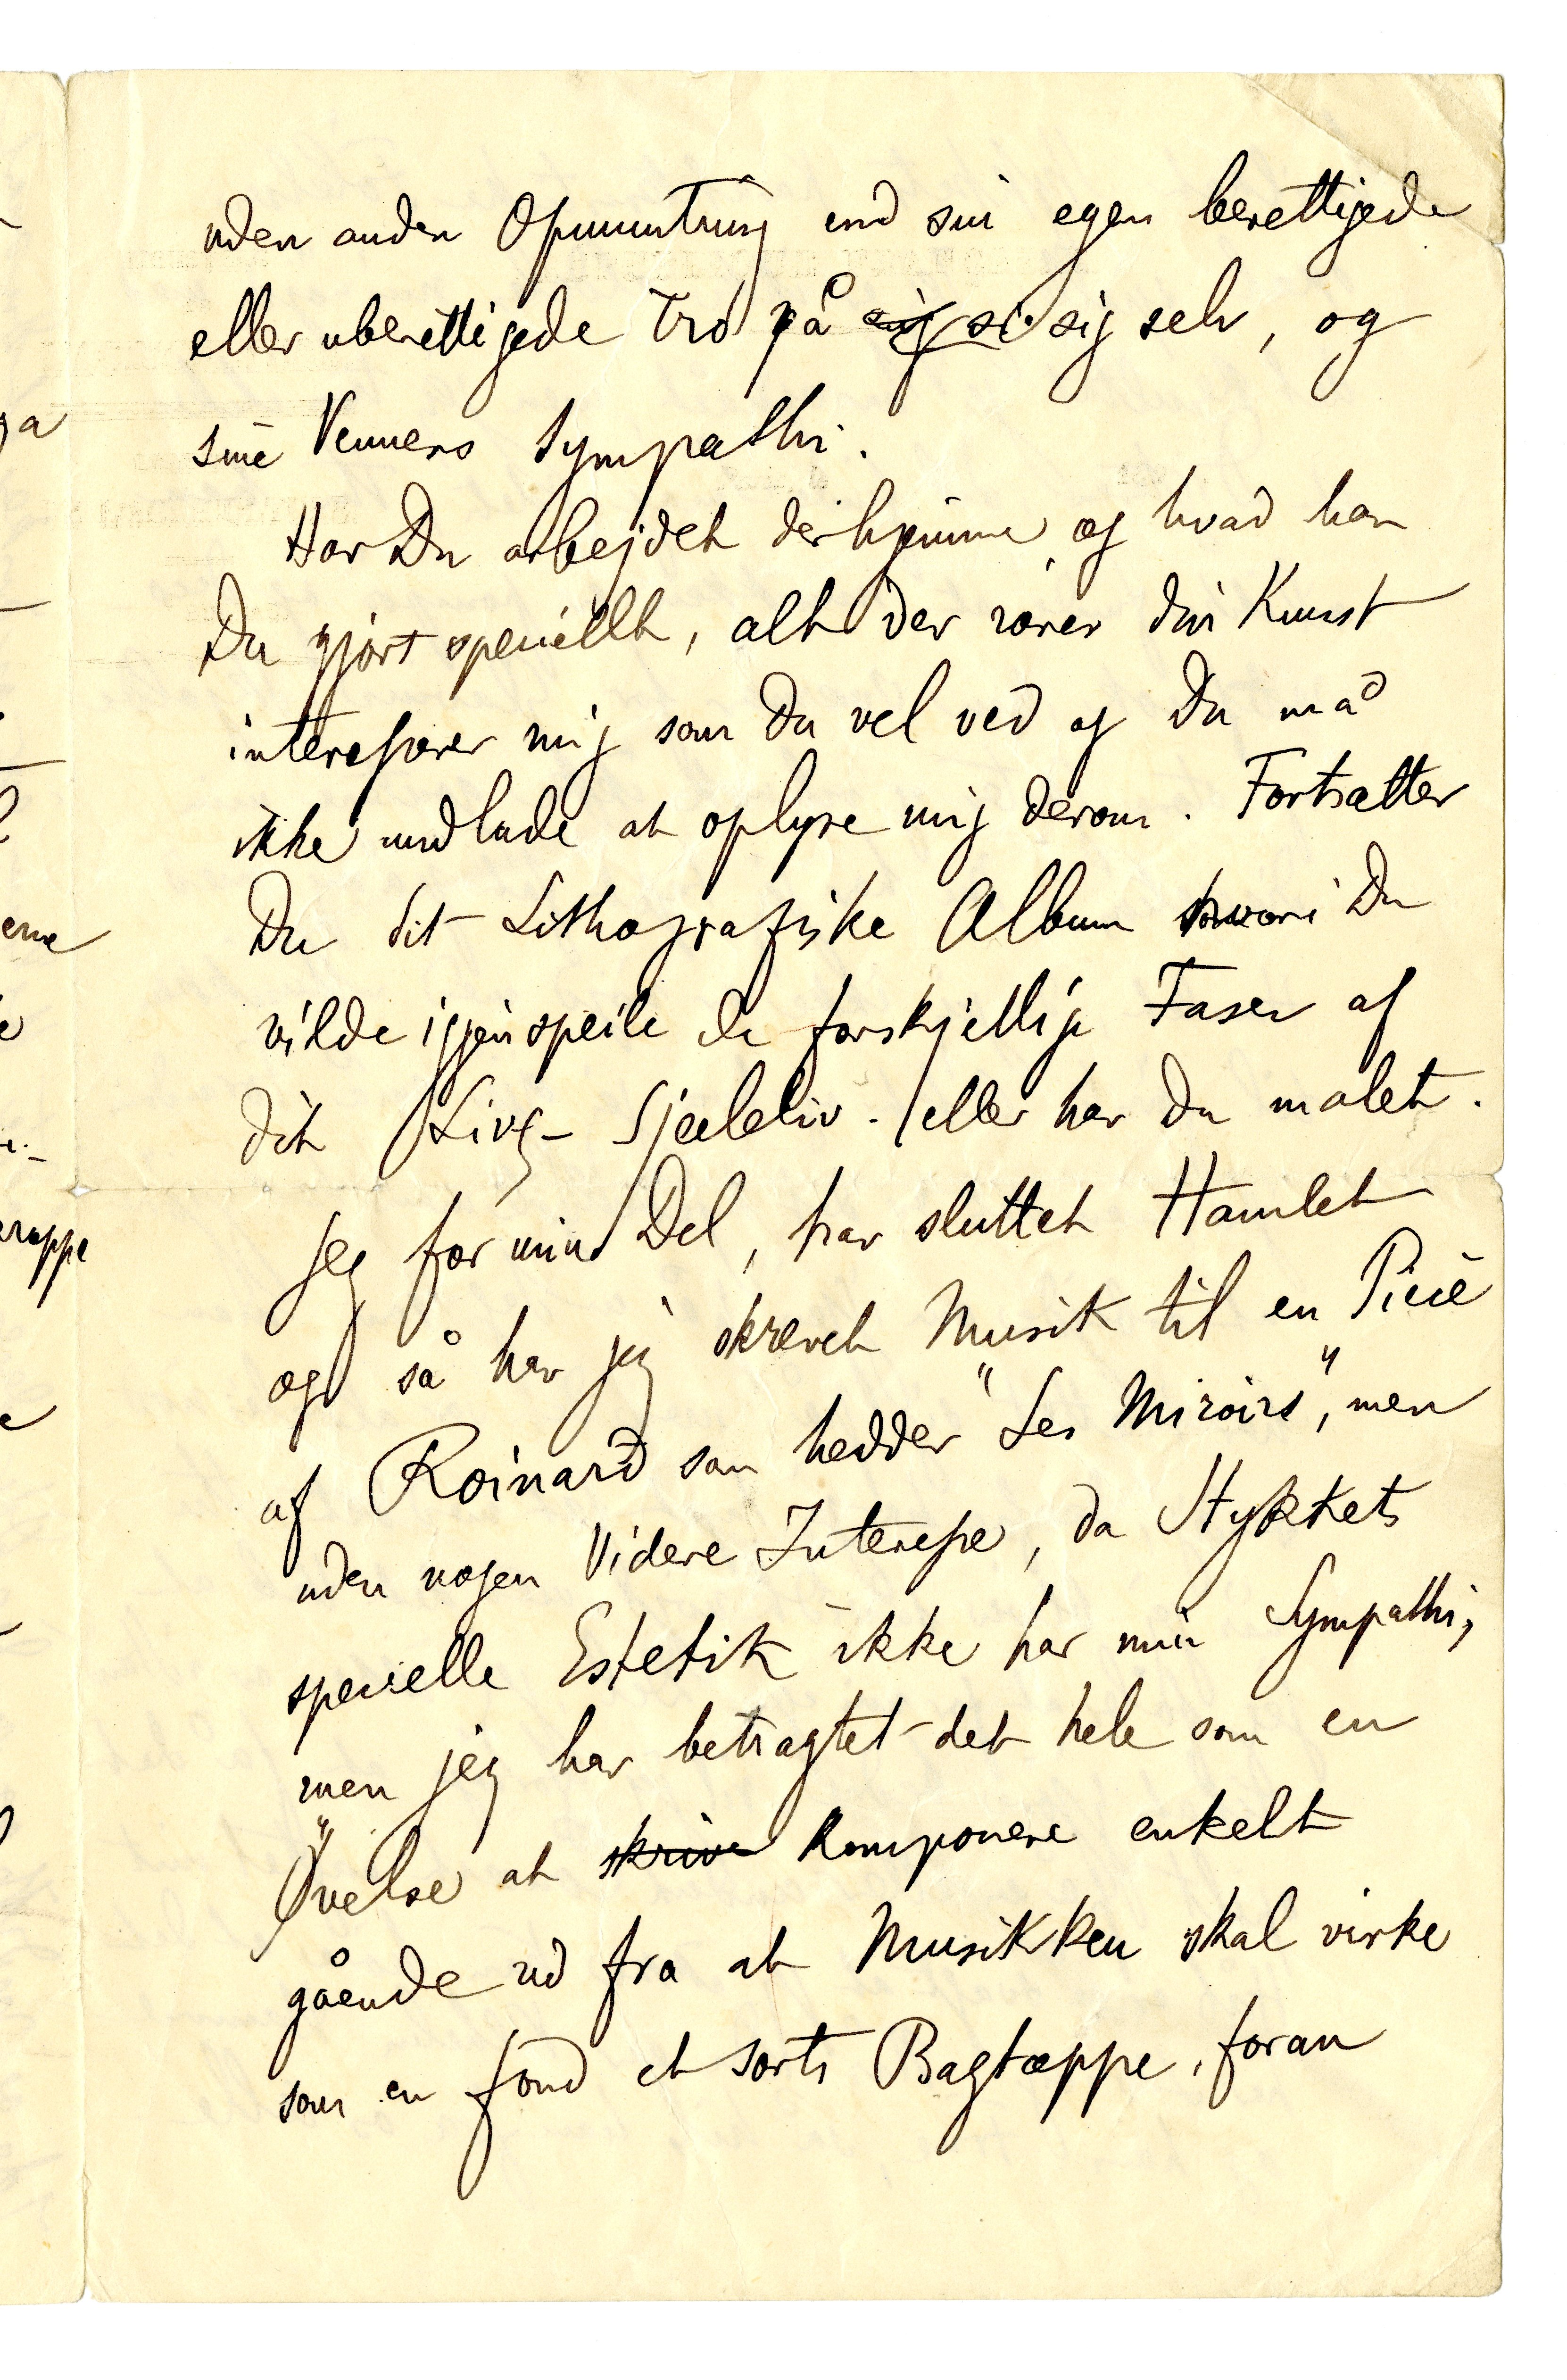 uden anden Opmuntring end sin egen berettigede
eller uberettigede Tro på sig si sig selv, og
sine Venners Sympathi.
Har Du arbejdet derhjemme og hvad har
Du gjort speciellt, alt der rører din Kunst
interesserer mig som Du vel ved og Du må
ikke undlade at oplyse mig derom. Fortsætter
Du dit Lithografiske Album hvori Du
vilde igjenspeile de forskjellige Faser af
dit Livs- Sjæleliv. eller har Du malet.
Jeg for min Del, har sluttet Hamlet
og så har jeg skrevet Musik til en Pièce
af Roinard som hedder "Les Miroirs", men
uden nogen Videre Interesse, da Stykkets
specielle Estetik ikke har min Sympathi,
men jeg har betragtet det hele som en
Øvelse at skrive komponere enkelt
gående ud fra at Musikken skal virke
som en fond et sorts Bagtæppe, foran
a
erne
e
rappe